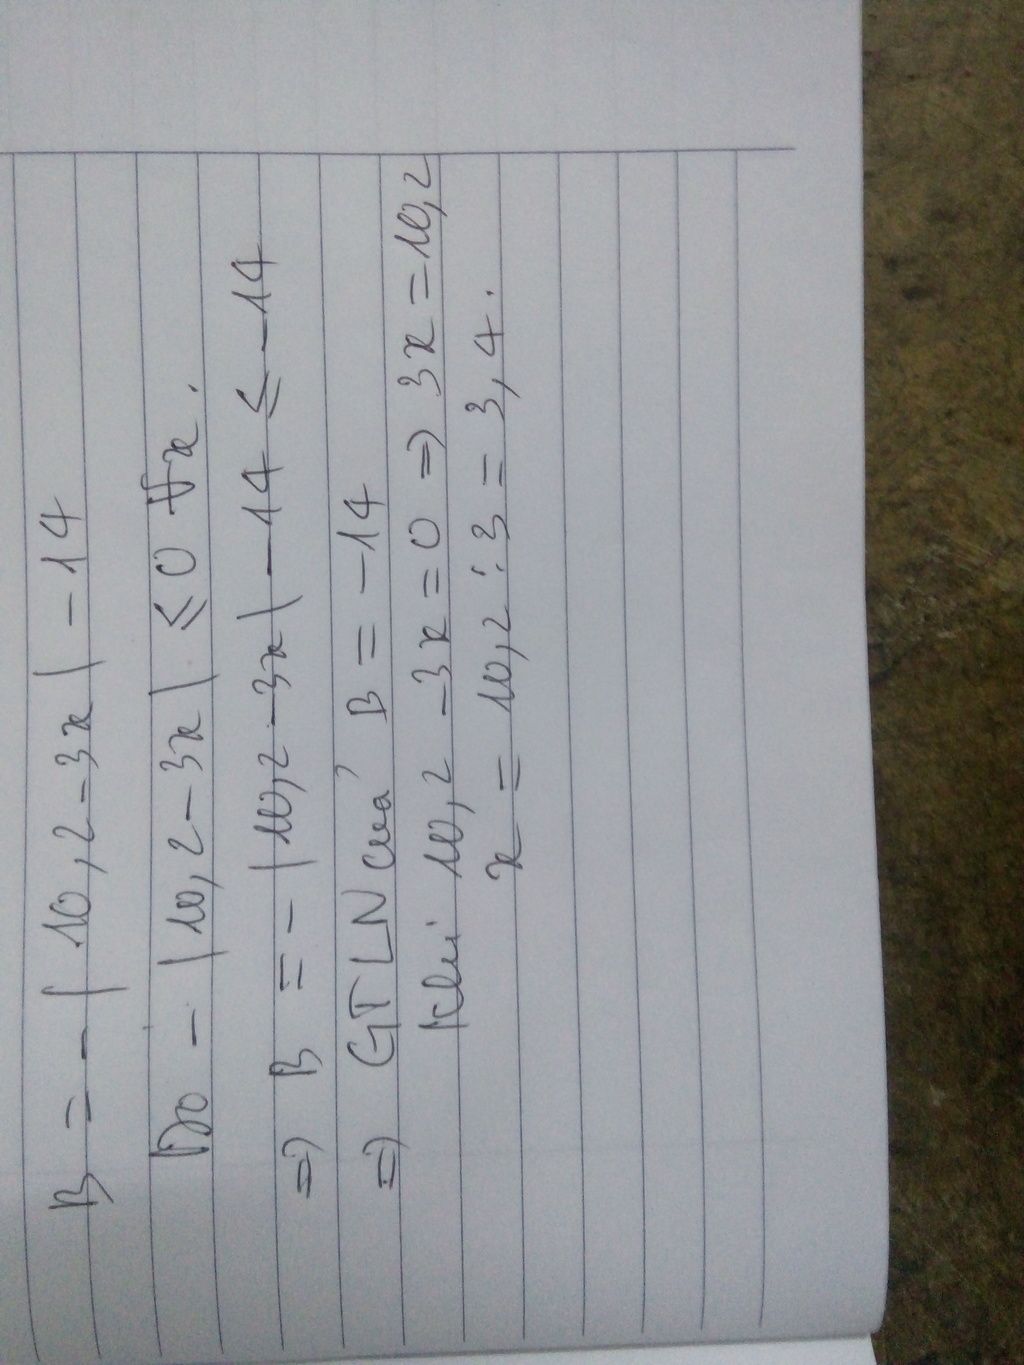 B = - | 10,2 - 3x | - 14
Do - | 10,2 - 3x | ≤ 0 ∀x.
=> B = - | 10,2 - 3x | - 14 ≤ - 14
=> GTLN của B = - 14
Khi 10,2 - 3x = 0 => 3x = 10,2
x = 10,2 : 3 = 3,4.